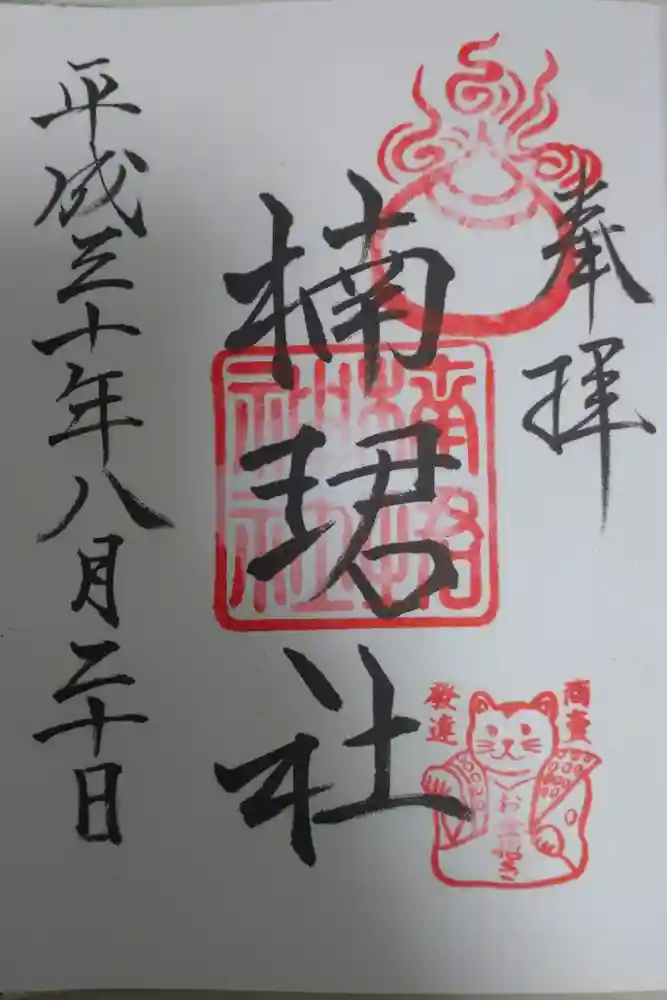 奉拝
楠珺社
平成三十年八月二十日
商賣
發達